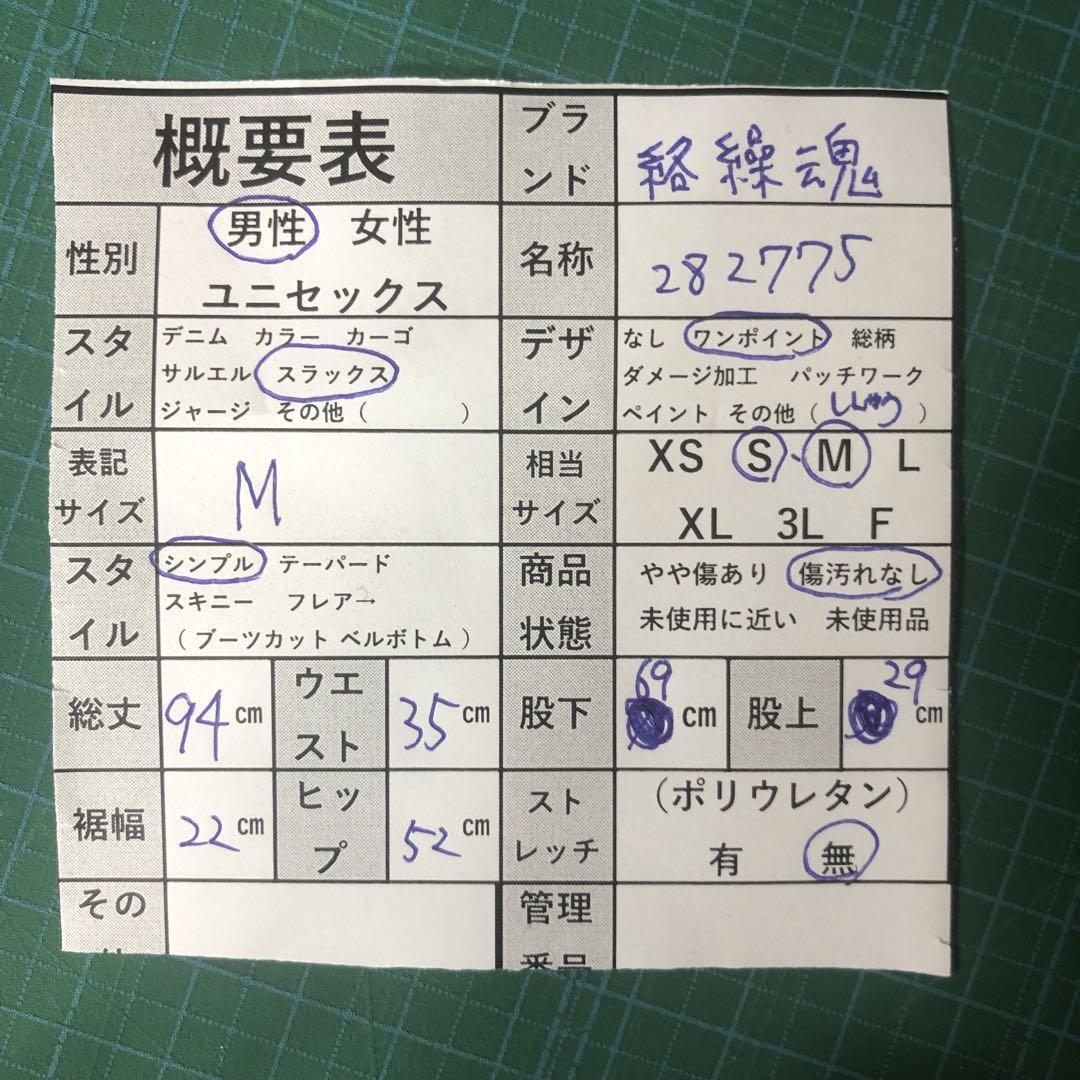 概要表
ブランド
絡繰魂
性別
男性 女性
ユニセックス
名称
282775
スタイル
デニム カラー カーゴ
サルエル スラックス
ジャージ その他（ ）
デザイン
なし ワンポイント 総柄
ダメージ加工 パッチワーク
ペイント その他（ししゅう）
表記
サイズ
M
相当
サイズ
XS S・M L
XL 3L F
スタイル
シンプル テーパード
スキニー フレア→
（ブーツカット ベルボトム）
商品
状態
やや傷あり 傷汚れなし
未使用に近い 未使用品
総丈
94cm
ウエスト
35cm
股下
69
cm
股上
29
cm
裾幅
22cm
ヒップ
52cm
ストレッチ
（ポリウレタン）
有 無
その
管理